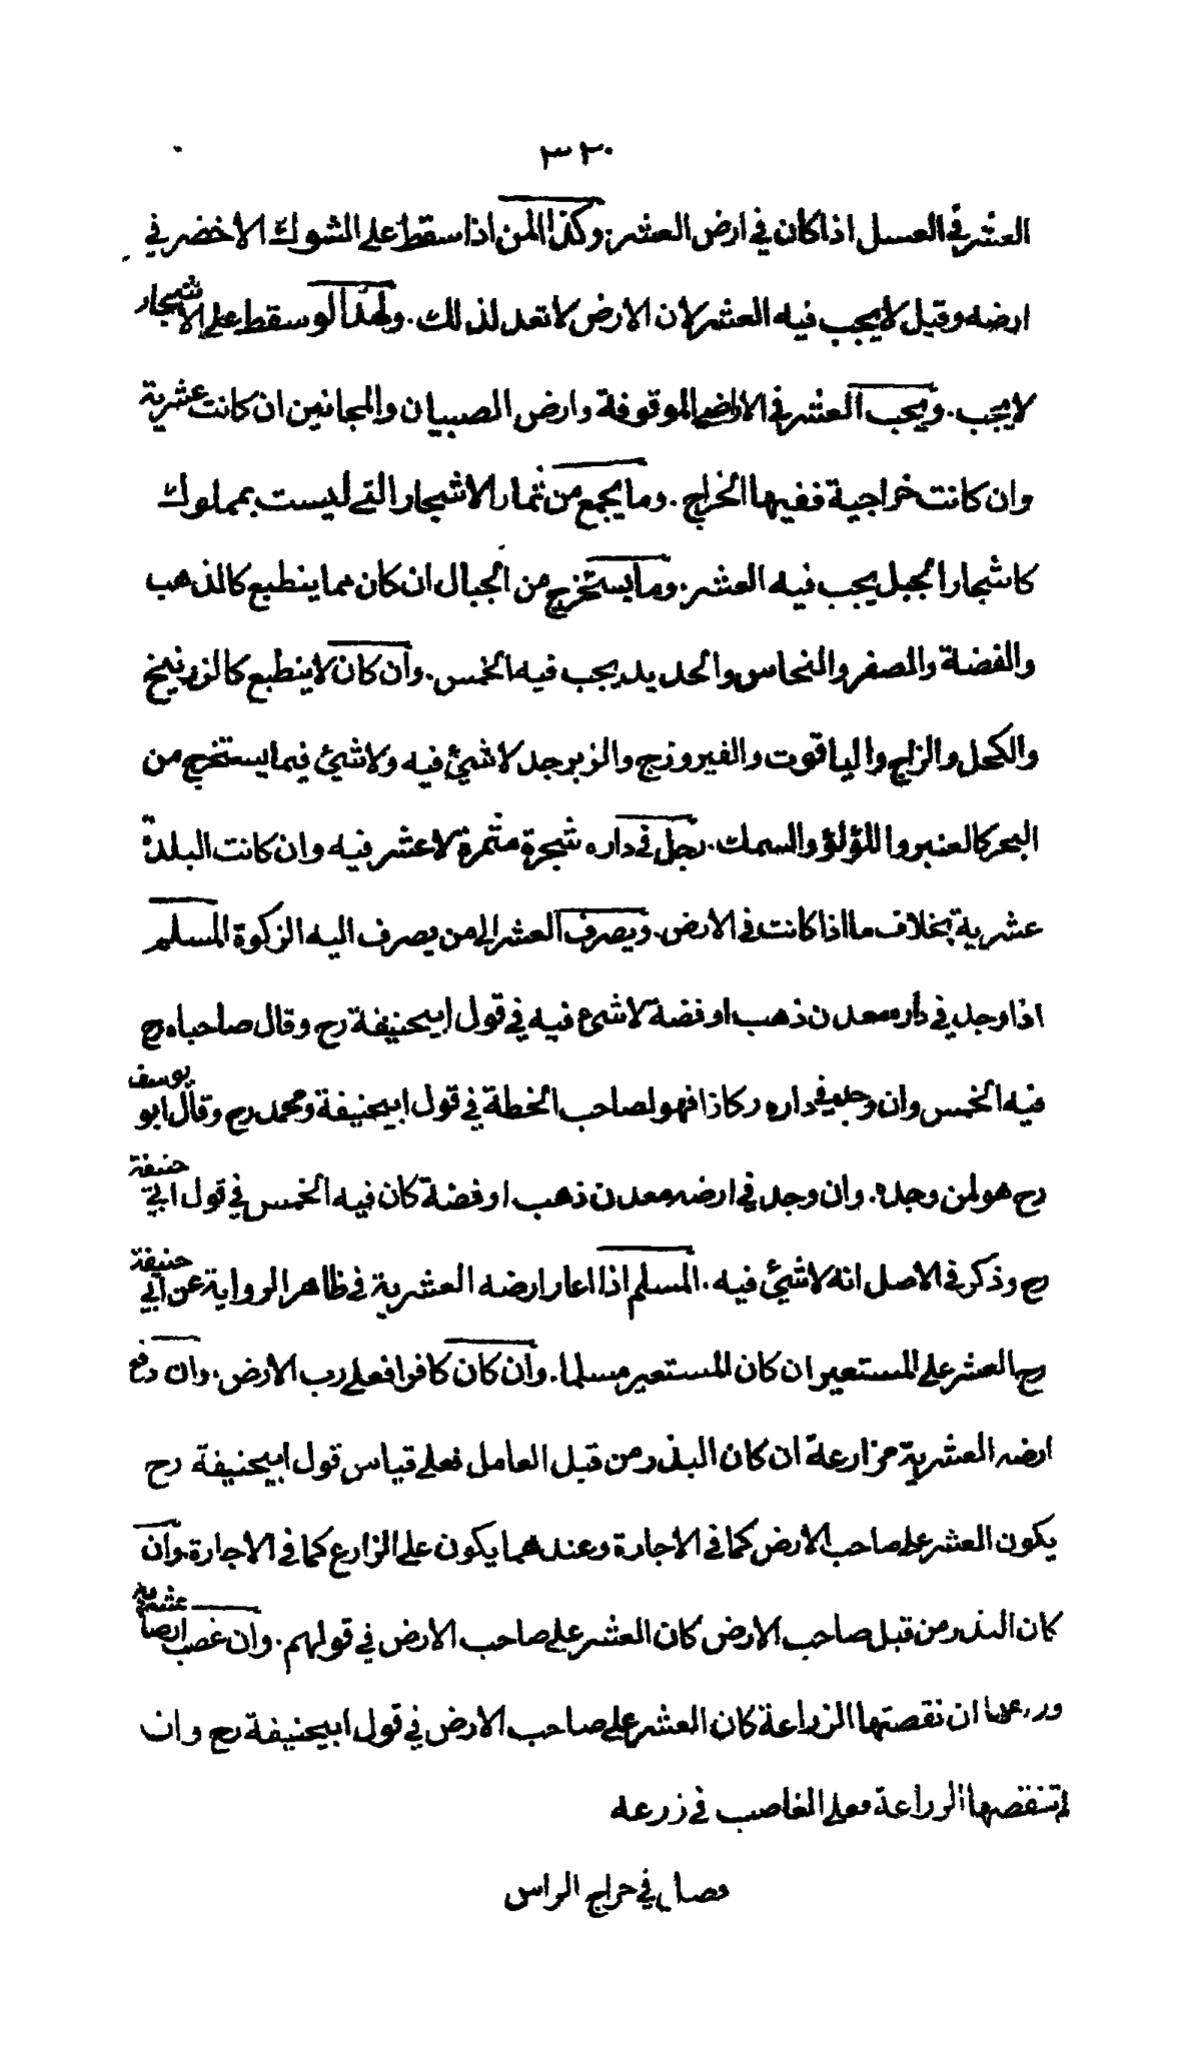 ٣٢٠
العشر في العسل اذا كان في ارض العشر. وكذا المن اذا سقط على الشوك الاخضر في
ارضه وقيل لا يجب فيه العشر لان الارض لا تعد لذلك. ولهذا لو سقط على الاشجار
لا يجب. ويجب العشر في الاراضي الموقوفة وارض الصبيان والمجانين ان كانت عشرية
وان كانت خراجية ففيها الخراج. وما يجمع من ثمار الاشجار التي ليست بمملوك
كاشجار الجبل يجب فيه العشر. وما يستخرج من الجبال ان كان مما ينطبع كالذهب
والفضة والصفر والنحاس والحديد يجب فيه الخمس. وان كان لا ينطبع كالزرنيخ
والكحل والزاج والياقوت والفيروزج والزبرجد لا شيئ فيه ولا شيئ فيما يستخرج من
البحر كالعنبر واللؤلؤ والسمك. رجل في داره شجرة مثمرة لا عشر فيه وان كانت البلدة
عشرية بخلاف ما اذا كانت في الارض. ويصرف العشر الى من يصرف اليه الزكوة المسلم
اذا وجد في داره معدن ذهب او فضة لا شئ فيه في قول ابيحنيفة رح وقال صاحباه رح
فيه الخمس وان وجد في داره ركازا فهو لصاحب الخطة في قول ابيحنيفة ومحمد رح وقال ابو يوسف
رح هو لمن وجده. وان وجد في ارضه معدن ذهب او فضة كان فيه الخمس في قول ابي حنيفة
رح وذكر في الاصل انه لا شيئ فيه. المسلم اذا اعار ارضه العشرية في ظاهر الرواية عن ابي حنيفة
رح العشر على المستعير ان كان المستعير مسلما. وان كان كافرا فعلى رب الارض. وان دفع
ارضه العشرية مزارعة ان كان البذر من قبل العامل فعلى قياس قول ابيحنيفة رح
يكون العشر على صاحب الارض كما في الاجارة وعندهما يكون على الزارع كما في الاجارة وان
كان البذر من قبل صاحب الارض كان العشر على صاحب الارض في قولهم. وان غصب ارضا عشرية
وزرعها ان نقصتها الزراعة كان العشر على صاحب الارض في قول ابيحنيفة رح وان
لم تنقصها الزراعة فعلى الغاصب في زرعه
فصل في خراج الراس